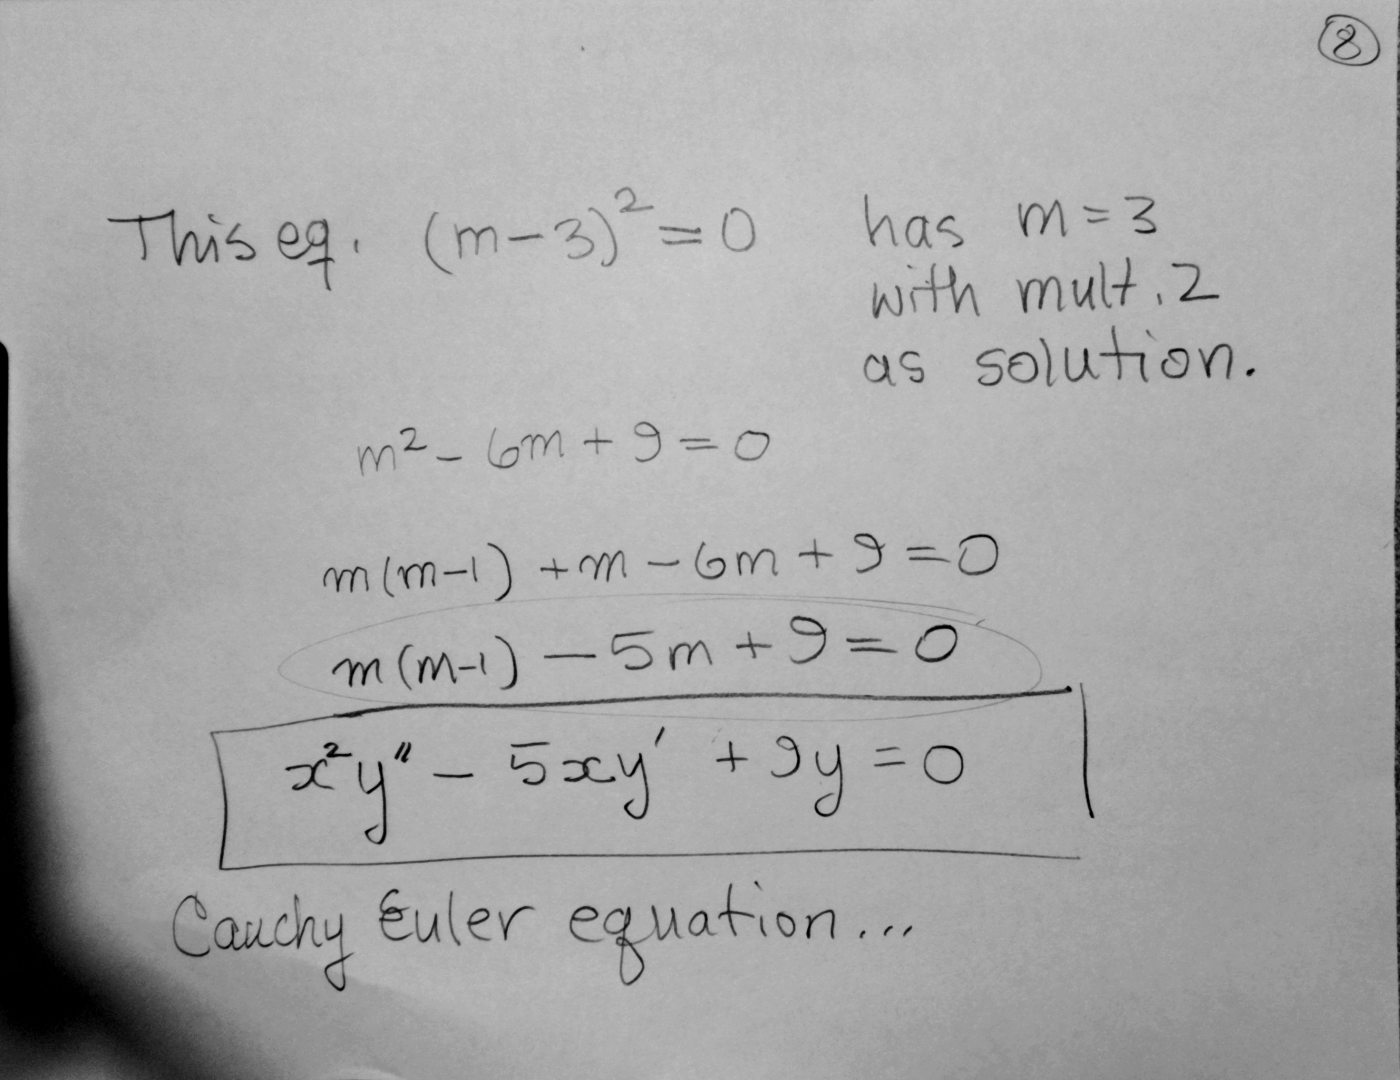 8
This eq. (m-3)² = 0 has m = 3
with mult. 2
as solution.
m² - 6m + 9 = 0
m(m-1) + m - 6m + 9 = 0
m(m-1) - 5m + 9 = 0
x²y" - 5xy' + 9y = 0
Cauchy Euler equation...